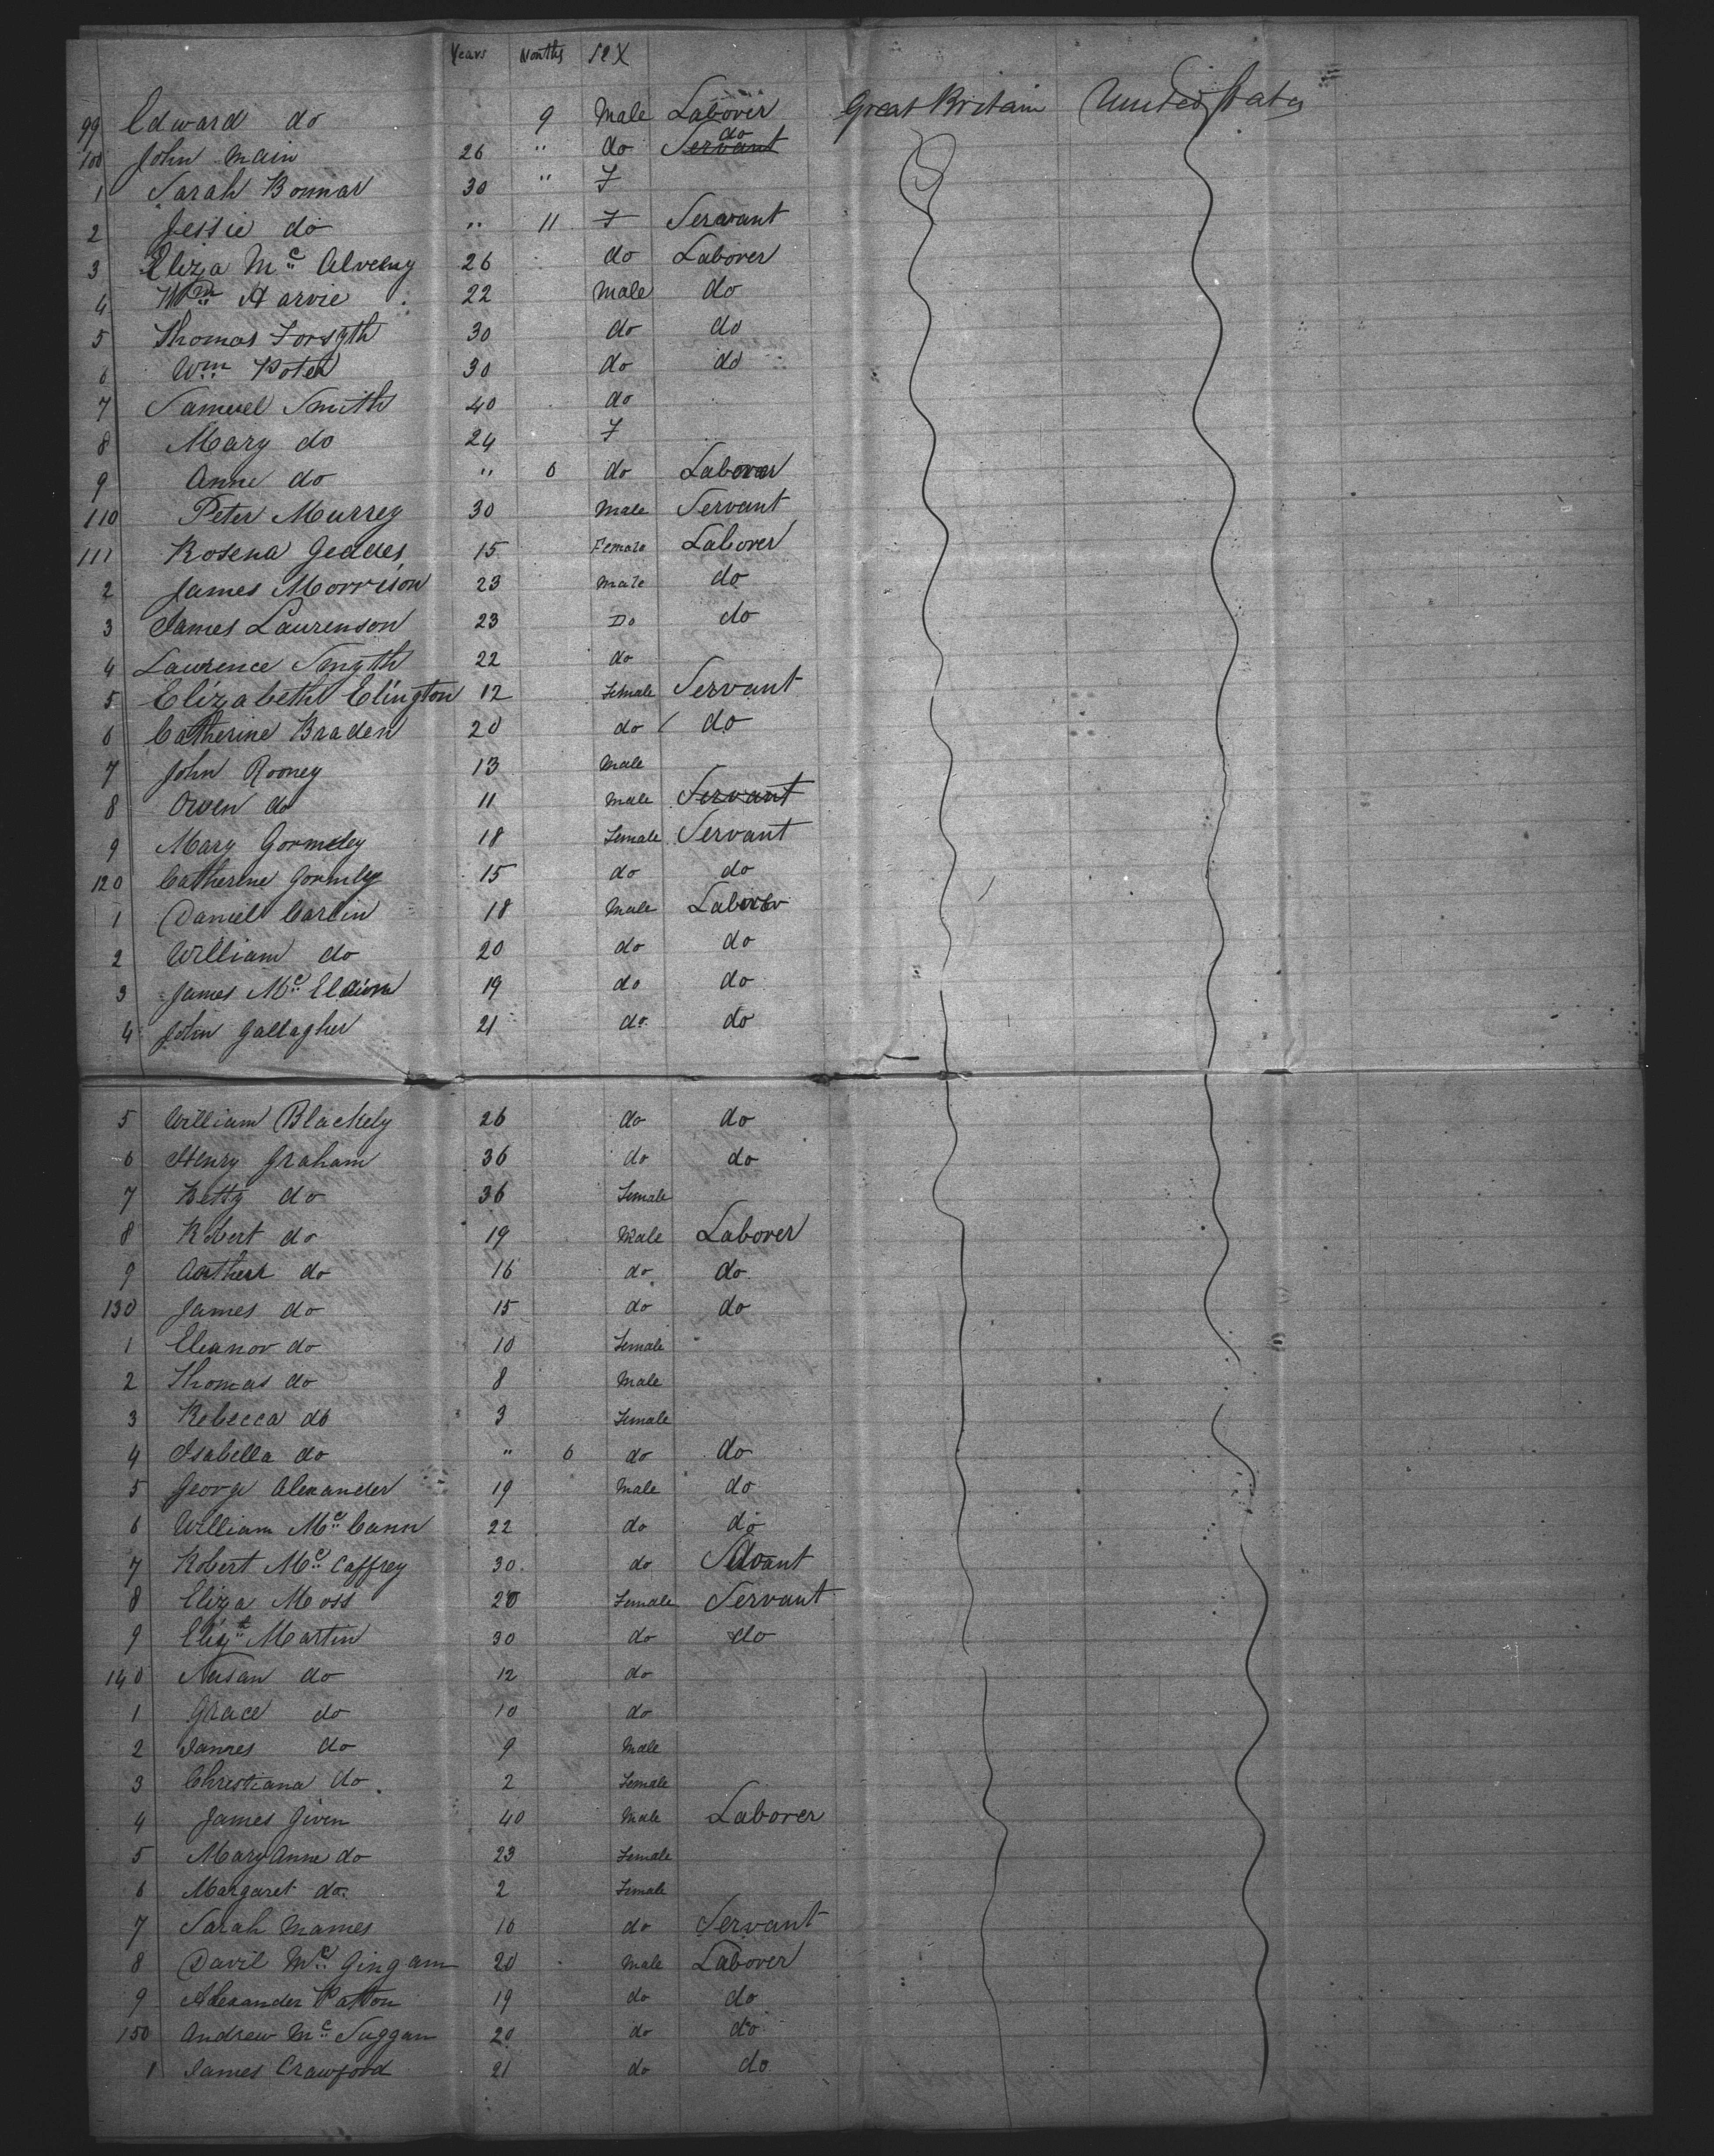 Years Months Sex
99 Edward do 9 Male Laborer Great Britain United States
100 John Main 26 " do Servant do
1 Sarah Bonnar 30 " F
2 Jessie do " 11 F Servant
3 Eliza Mc Alveny 26 do Laborer
4 Wm Harvie 22 Male do
5 Thomas Forsyth 30 do do
6 Wm 30 do do
7 Samuel Smith 40 do
8 Mary do 24 F
9 Anne do " 6 do Laborer
110 Peter Murrey 30 Male Servant
111 Rosena Geddes 15 Female Laborer
2 James Morrison 23 Male do
3 James Laurenson 23 Do do
4 Laurence Smyth 22 do
5 Elizabeth Elington 12 Female Servant
6 Catherine Braden 20 do do
7 John Rooney 13 Male
8 Owen do 11 Male Servant
9 Mary Gormeley 18 Female Servant
120 Catherine Gormley 15 do do
1 Daniel Carlin 18 Male Laborer
2 William do 20 do do
3 James Mc 19 do do
4 John Gallagher 21 do do
5 William Blackely 26 do do
6 Henry Graham 36 do do
7 Betty do 36 Female
8 Robert do 19 Male Laborer
9 do 16 do do
130 James do 15 do do
1 Eleanor do 10 Female
2 Thomas do 8 Male
3 Rebecca do 3 Female
4 Isabella do " 6 do do
5 George Alexander 19 Male do
6 William Mc Cann 22 do do
7 Robert Mc Caffrey 30 do
8 Eliza Moss 20 Female Servant
9 Elizt Martin 30 do do
140 Susan do 12 do
1 Grace do 10 do
2 James do 9 Male
3 Christiana do 2 Female
4 James Given 40 Male Laborer
5 Mary Anne do 23 Female
6 Margaret do 2 Female
7 Sarah Mames 16 do Servant
8 Davil Mc Gingam 20 Male Laborer
9 Alexander Patton 19 do do
150 Andrew Mc Suggan 20 do do
1 James Crawford 21 do do